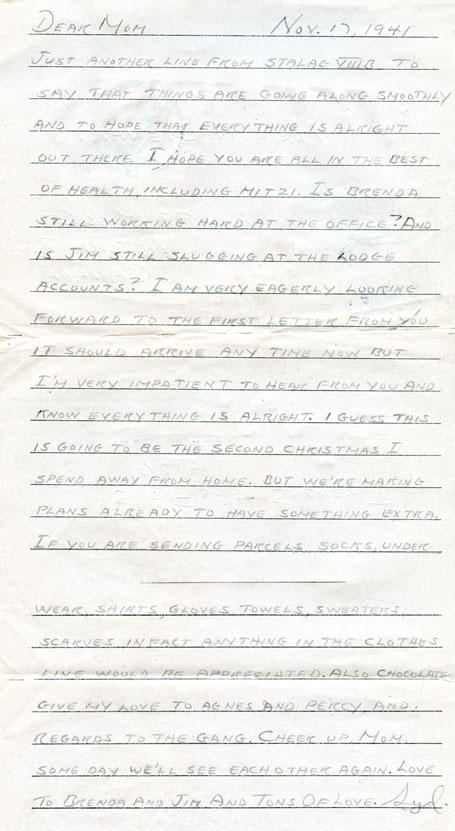 DEAR MOM NOV. 17, 1941
JUST ANOTHER LINE FROM STALAG VIIIB TO
SAY THAT THINGS ARE GOING ALONG SMOOTHLY
AND TO HOPE THAT EVERYTHING IS ALRIGHT
OUT THERE. I HOPE YOU ARE ALL IN THE BEST
OF HEALTH, INCLUDING MITZI. IS BRENDA
STILL WORKING HARD AT THE OFFICE? AND
IS JIM STILL SLUGGING AT THE LODGE
ACCOUNTS? I AM VERY EAGERLY LOOKING
FORWARD TO THE FIRST LETTER FROM YOU
IT SHOULD ARRIVE ANY TIME NOW BUT
I'M VERY IMPATIENT TO HEAR FROM YOU AND
KNOW EVERYTHING IS ALRIGHT. I GUESS THIS
IS GOING TO BE THE SECOND CHRISTMAS I
SPEND AWAY FROM HOME. BUT WE'RE MAKING
PLANS ALREADY TO HAVE SOMETHING EXTRA.
IF YOU ARE SENDING PARCELS, SOCKS, UNDER-
WEAR, SHIRTS, GLOVES, TOWELS, SWEATERS,
SCARVES, INFACT ANYTHING IN THE CLOTHES
LINE WOULD BE APPRECIATED. ALSO CHOCOLATE
GIVE MY LOVE TO AGNES AND PERCY, AND.
REGARDS TO THE GANG. CHEER UP, MOM,
SOME DAY WE'LL SEE EACH OTHER AGAIN. LOVE
TO BRENDA AND JIM AND TONS OF LOVE. Syd.